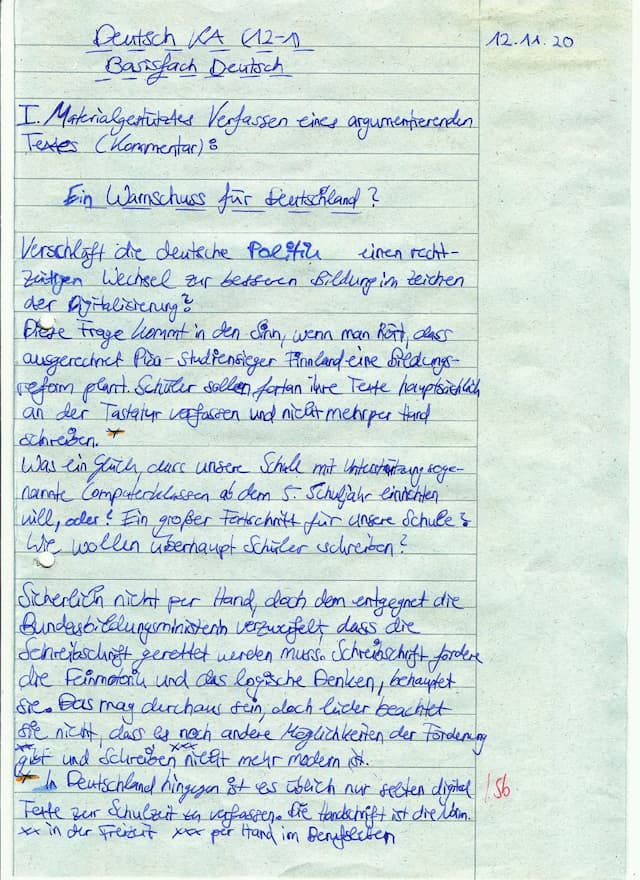 Deutsch KA (12-1)
12.11.20
Basisfach Deutsch
I. Materialgestütztes Verfassen eines argumentierenden
Textes (Kommentar):
Ein Warnschuss für Deutschland?
Verschläft die deutsche Politik einen recht-
zeitigen Wechsel zur besseren Bildung im Zeichen
der Digitalisierung?
Diese Frage kommt in den Sinn, wenn man hört, dass
ausgerechnet Pisa-Studiensieger Finnland eine Bildungs-
reform plant. Schüler sollen fortan ihre Texte hauptsächlich
an der Tastatur verfassen und nicht mehr per Hand
schreiben.
Was ein Glück, dass unsere Schule mit Unterstützung soge-
nannte Computerklassen ab dem 5. Schuljahr einrichten
will, oder? Ein großer Fortschritt für unsere Schule?
Wie wollen überhaupt Schüler schreiben?
Sicherlich nicht per Hand, doch dem entgegnet die
Bundesbildungsministerin verzweifelt, dass die
Schreibschrift gerettet werden muss. Schreibschrift fördere
die Feinmotorik und das logische Denken, behauptet
sie. Das mag durchaus sein, doch leider beachtet
sie nicht, dass es noch andere Möglichkeiten der Förderung
gibt und Schreiben xxx nicht mehr modern ist.
In Deutschland hingegen ist es üblich nur selten digital
Texte zur Schulzeit zu verfassen. Die Handschrift ist die Norm.
xx in der Freizeit xxx per Hand im Berufsleben